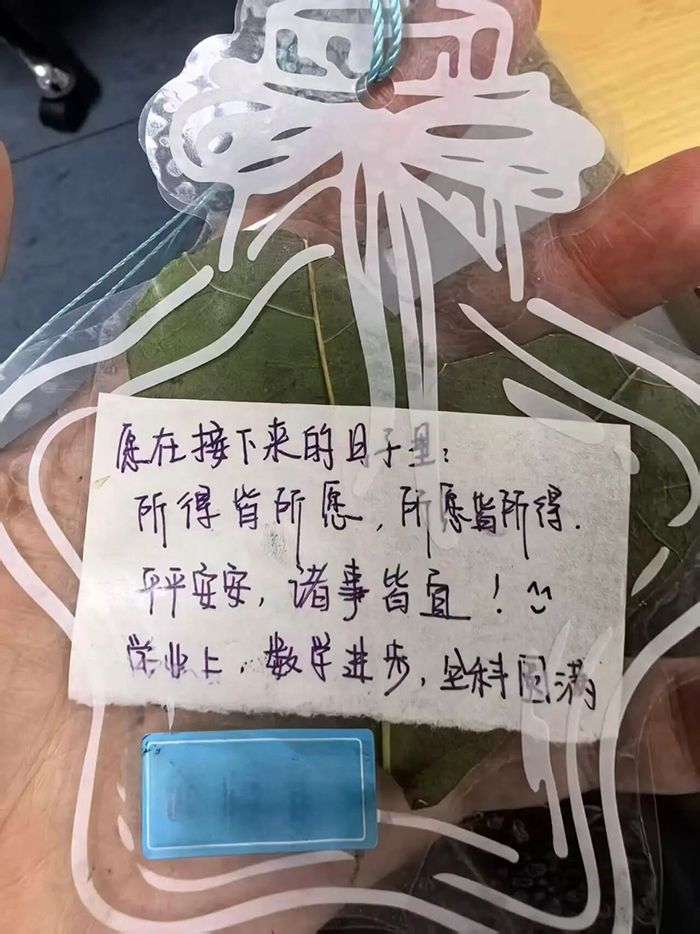 愿在接下来的日子里：
所得皆所愿，所愿皆所得.
平平安安，诸事皆宜！
学业上，数学进步，全科圆满